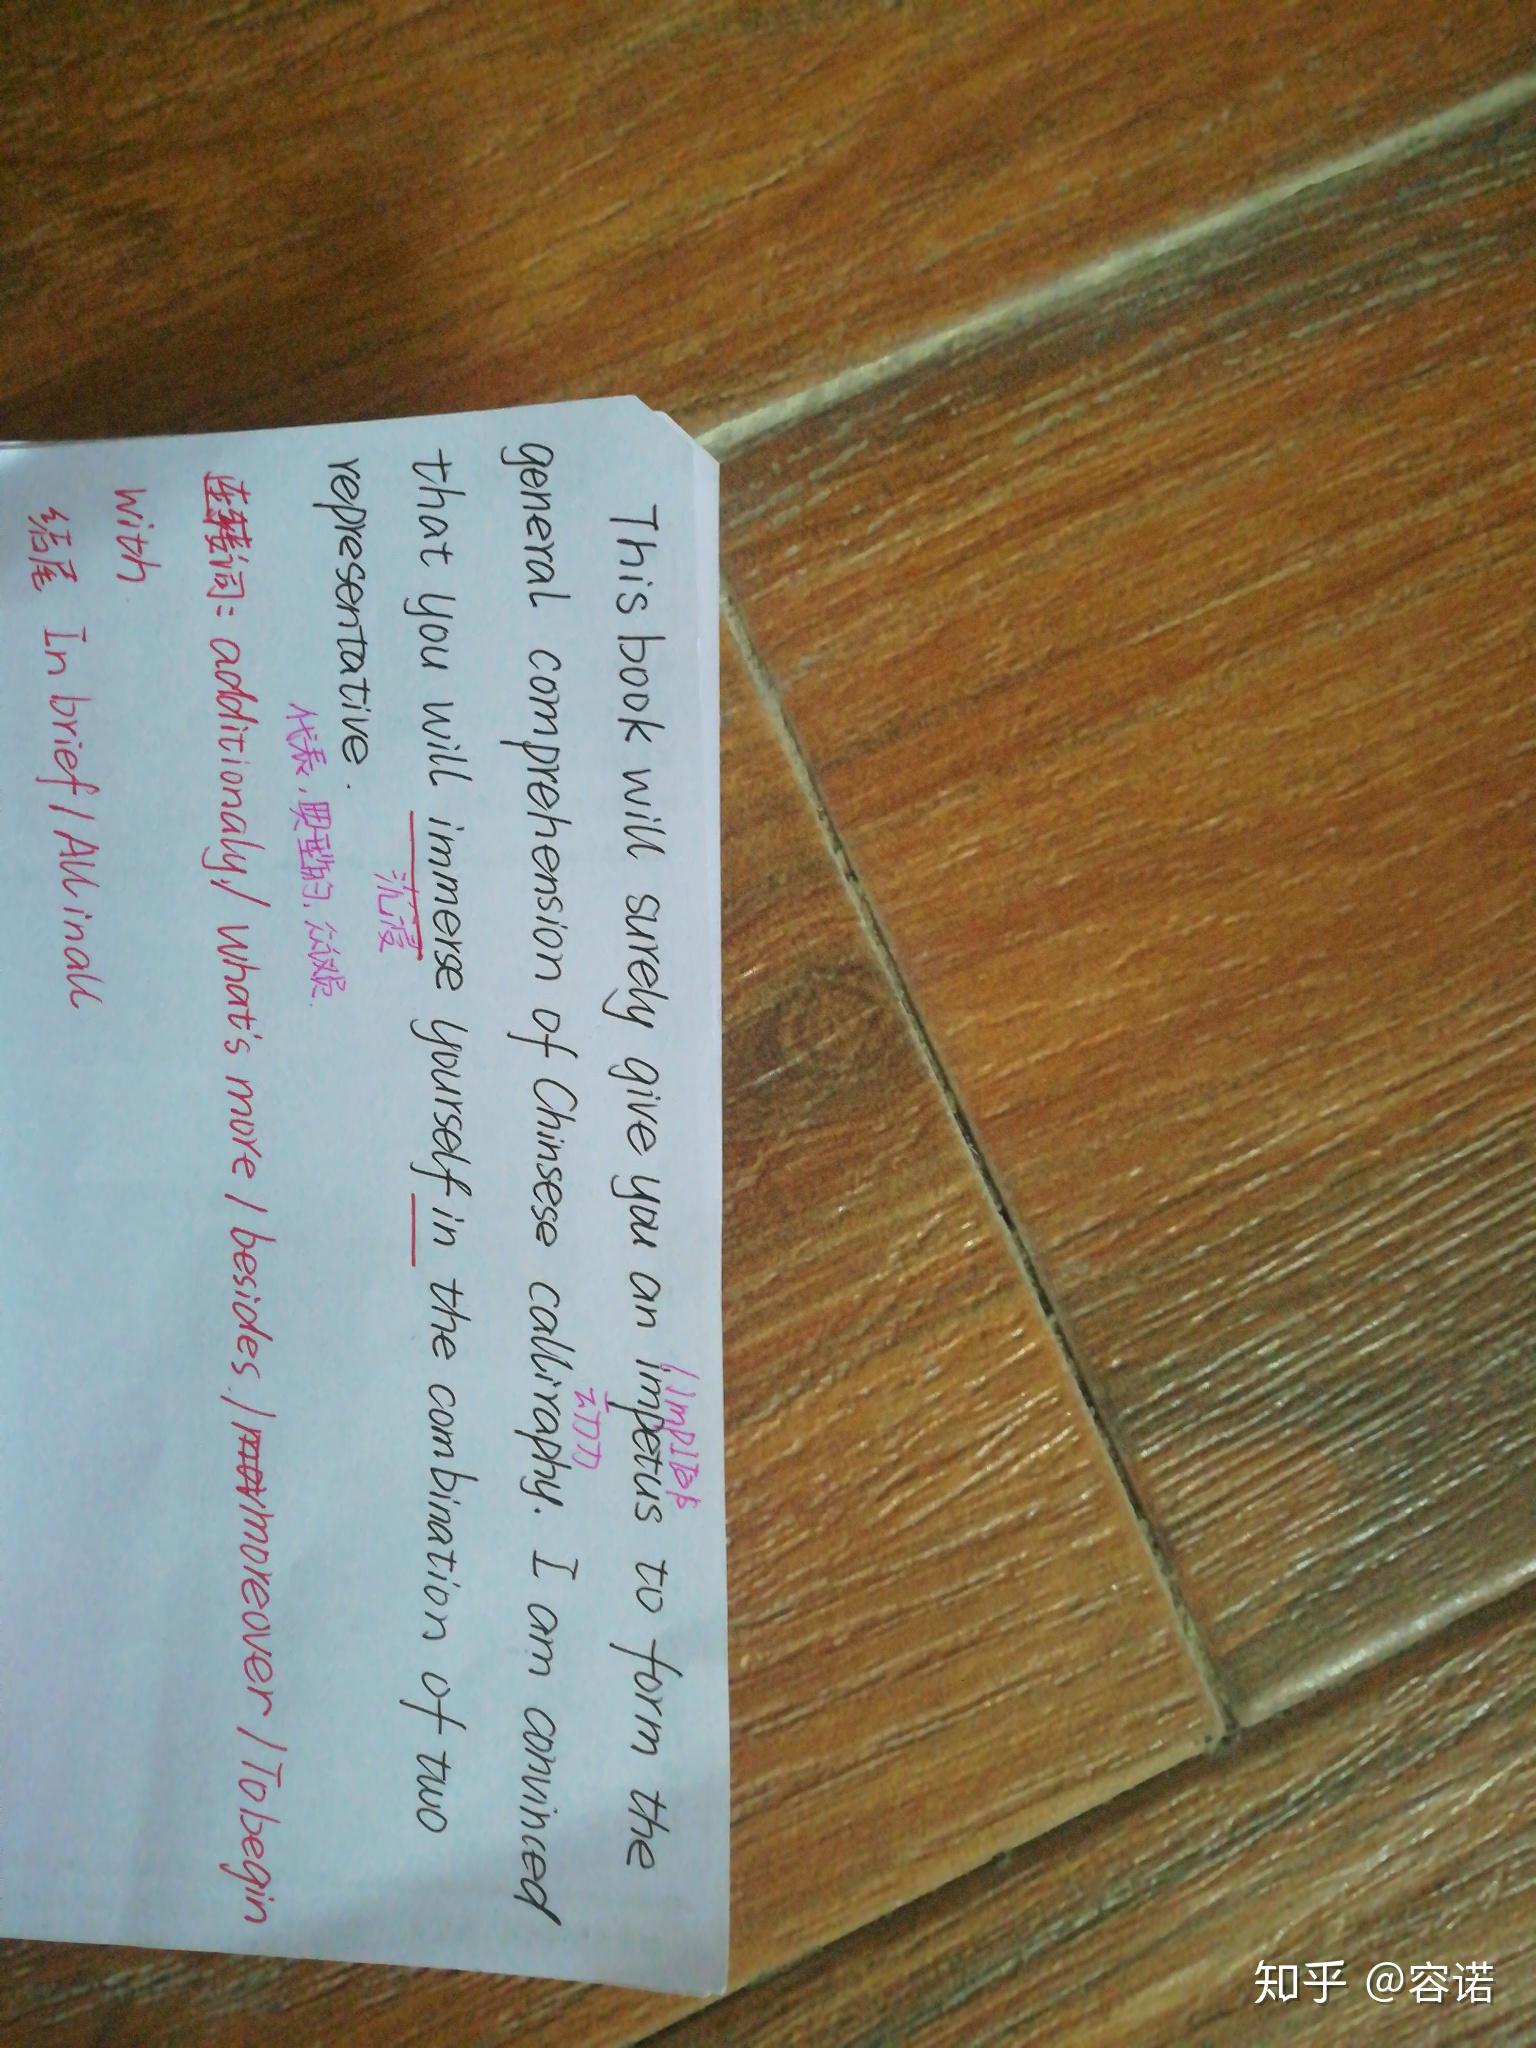 This book will surely give you an impetus to form the
动力
general comprehension of Chinsese calliraphy. I am convinced
that you will immerse yourself in the combination of two
沉浸
representative.
代表，典型的，众议员.
连接词: additionaly/ what's more / besides /moreover / To begin
with
结尾 In brief / All in all
知乎 @容诺